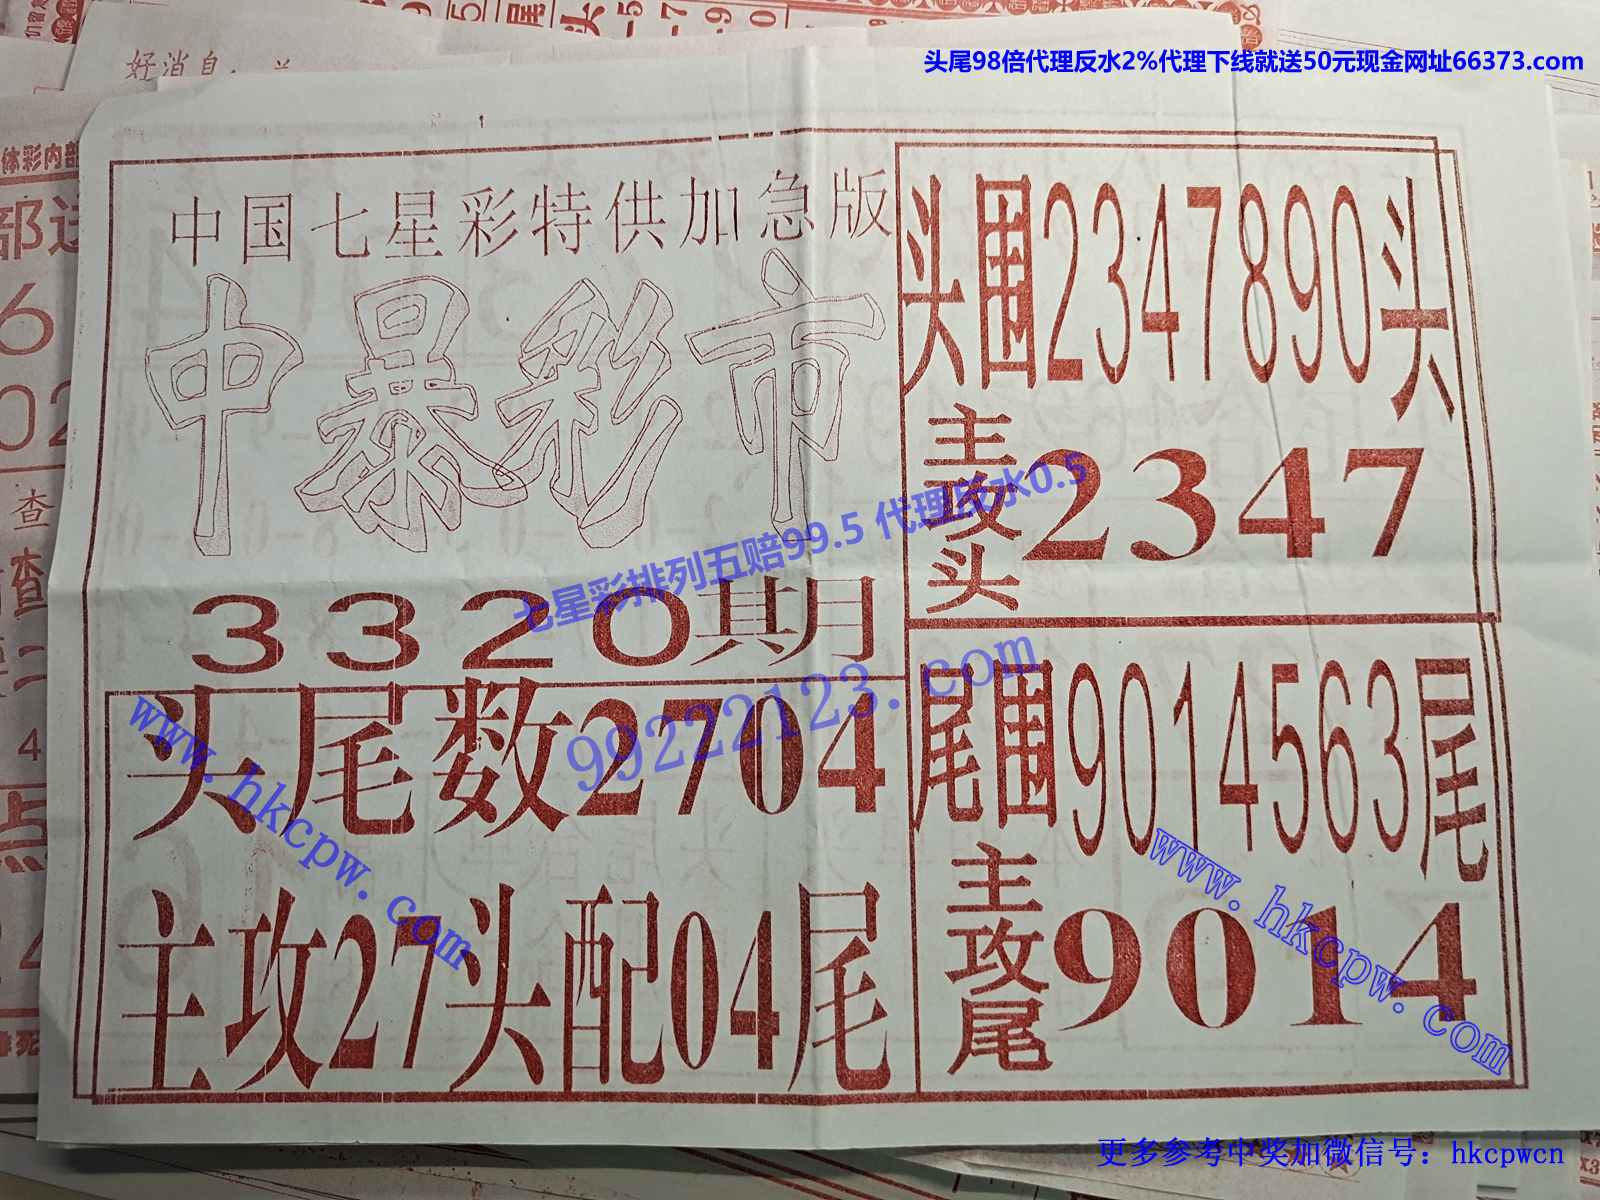 好消息.
头尾98倍代理反水2%代理下线就送50元现金网址66373.com
体彩内部
中国七星彩特供加急版
中暴彩市
3320期
头尾数2704
主攻27头配04尾
头围2347890头
主攻头2347
尾围9014563尾
主攻尾9014
七星彩排列五赔99.5 代理反水0.5
99222123.com
www.hkcpw.com
www.hkcpw.com
更多参考中奖加微信号：hkcpwcn